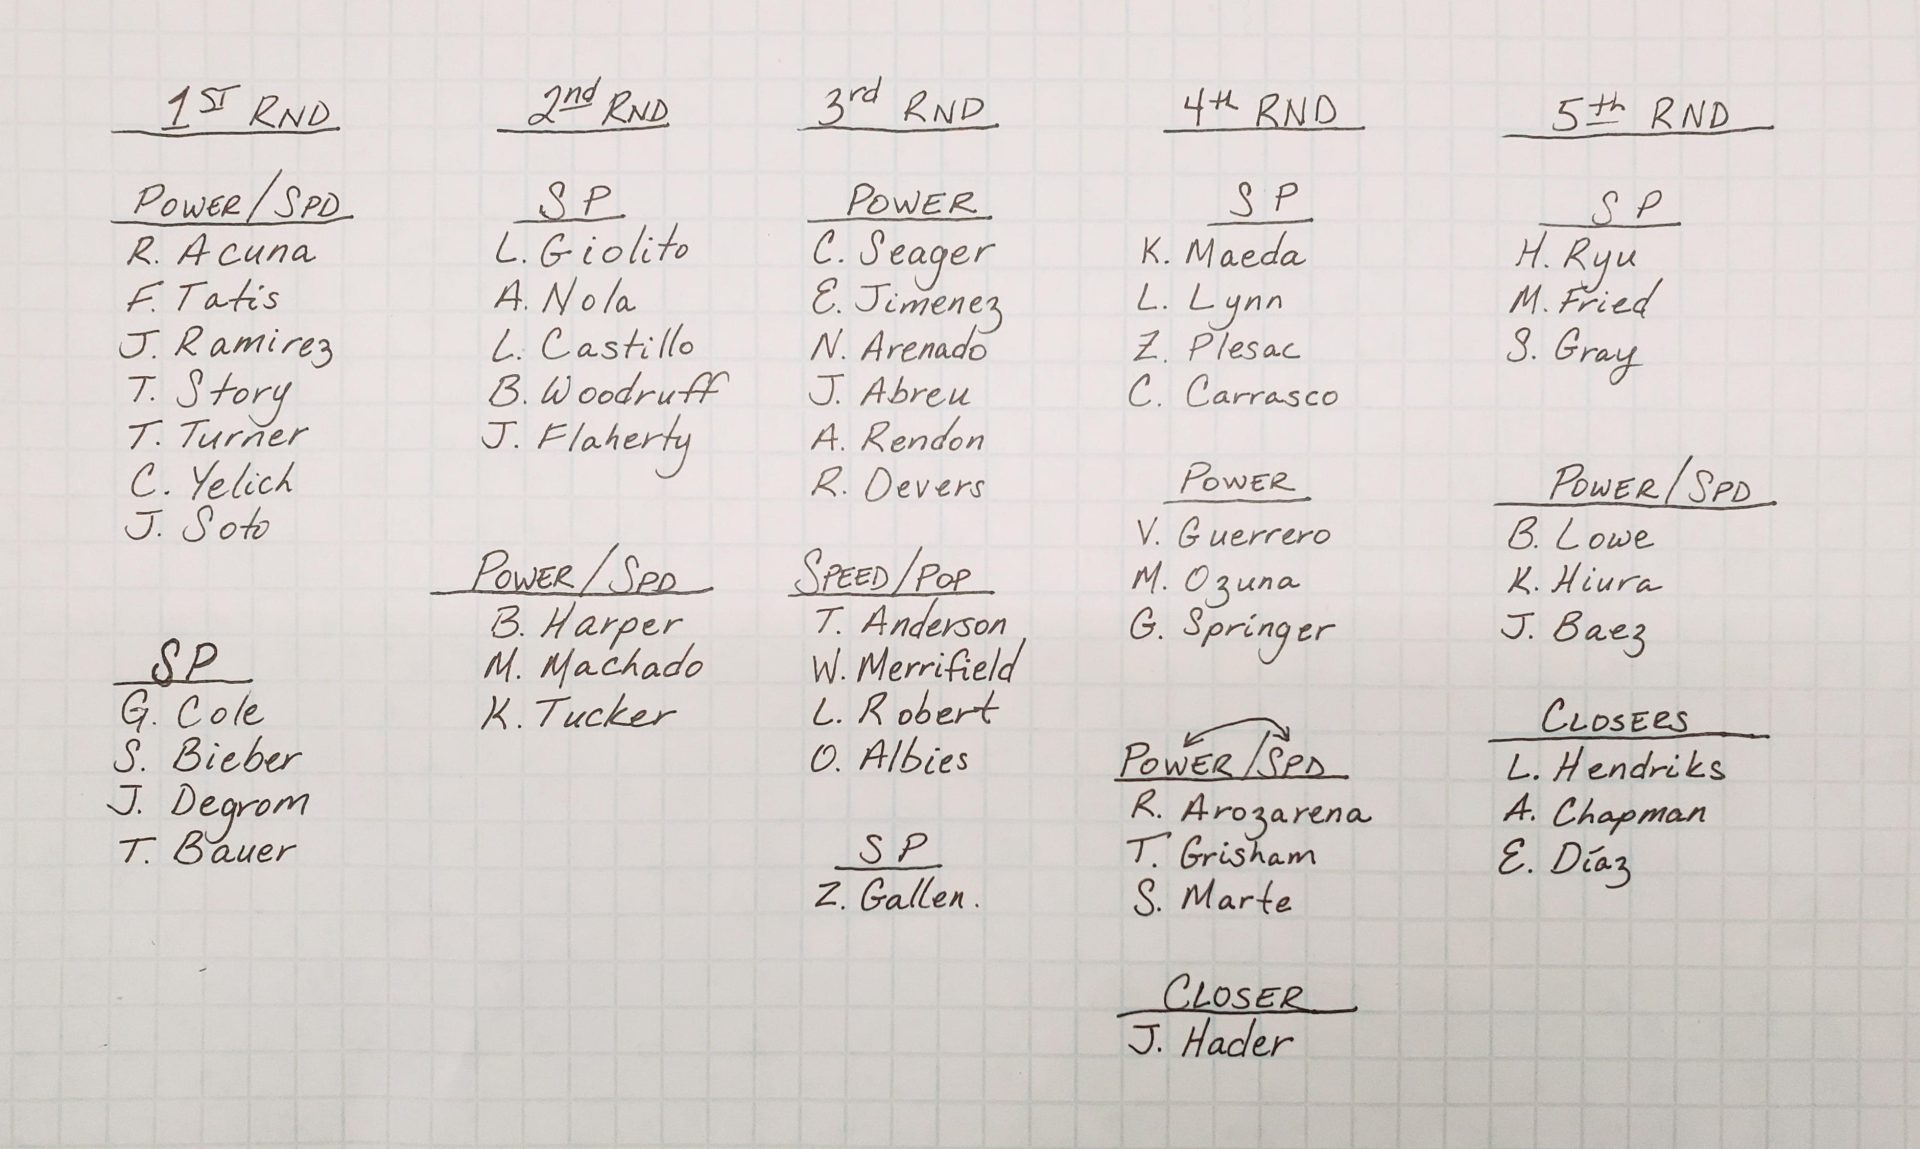 1ST RND
POWER/SPD
R. Acuna
F. Tatis
J. Ramirez
T. Story
T. Turner
C. Yelich
J. Soto
SP
G. Cole
S. Bieber
J. Degrom
T. Bauer
2nd RND
SP
L. Giolito
A. Nola
L. Castillo
B. Woodruff
J. Flaherty
POWER/SPD
B. Harper
M. Machado
K. Tucker
3rd RND
POWER
C. Seager
E. Jimenez
N. Arenado
J. Abreu
A. Rendon
R. Devers
SPEED/POP
T. Anderson
W. Merrifield
L. Robert
O. Albies
SP
Z. Gallen.
4th RND
SP
K. Maeda
L. Lynn
Z. Plesac
C. Carrasco
POWER
V. Guerrero
M. Ozuna
G. Springer
POWER/SPD
R. Arozarena
T. Grisham
S. Marte
CLOSER
J. Hader
5th RND
SP
H. Ryu
M. Fried
S. Gray
POWER/SPD
B. Lowe
K. Hiura
J. Baez
CLOSERS
L. Hendriks
A. Chapman
E. Díaz